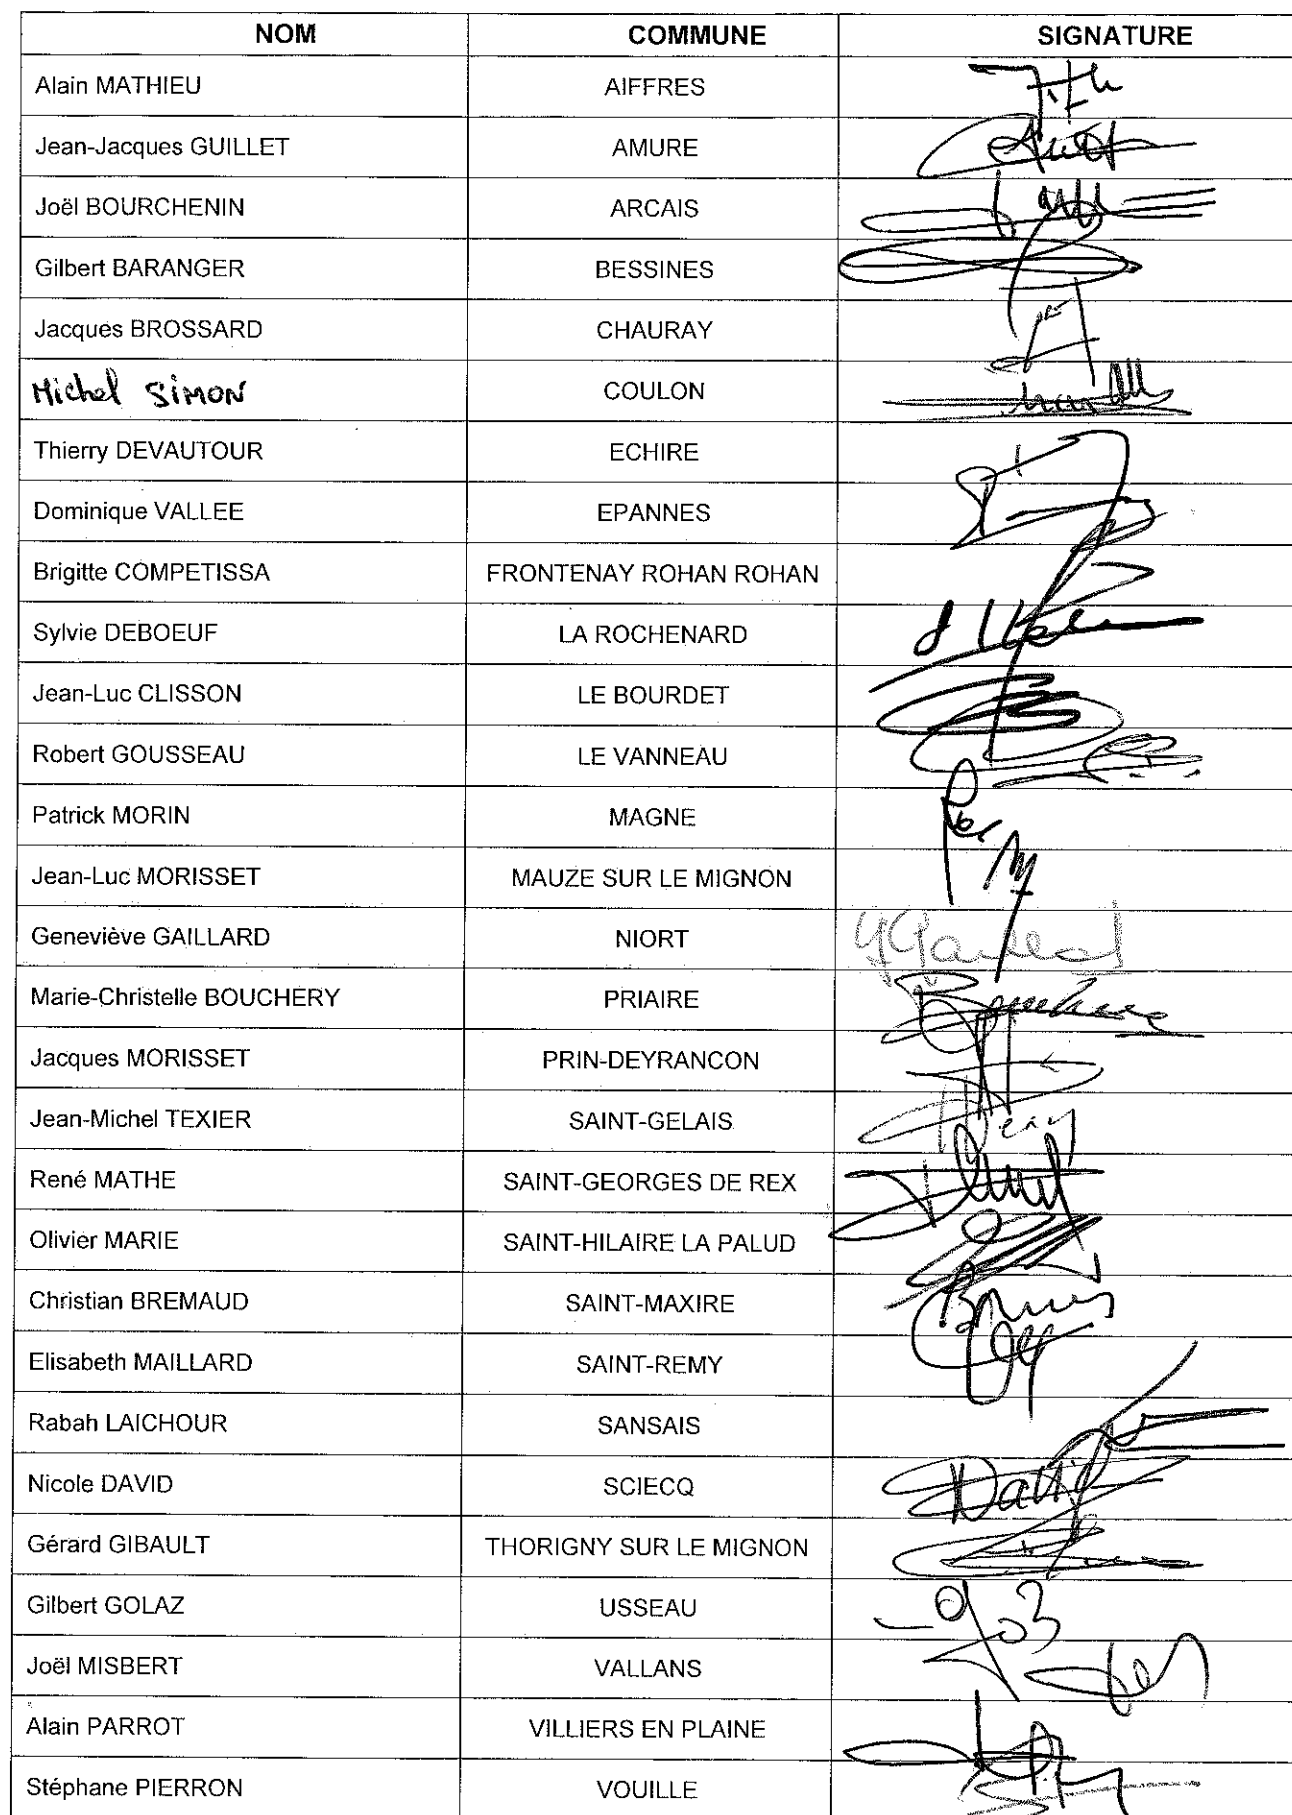 NOM COMMUNE SIGNATURE
Alain MATHIEU AIFFRES
Jean-Jacques GUILLET AMURE
Joël BOURCHENIN ARCAIS
Gilbert BARANGER BESSINES
Jacques BROSSARD CHAURAY
Michel SIMON COULON
Thierry DEVAUTOUR ECHIRE
Dominique VALLEE EPANNES
Brigitte COMPETISSA FRONTENAY ROHAN ROHAN
Sylvie DEBOEUF LA ROCHENARD
Jean-Luc CLISSON LE BOURDET
Robert GOUSSEAU LE VANNEAU
Patrick MORIN MAGNE
Jean-Luc MORISSET MAUZE SUR LE MIGNON
Geneviève GAILLARD NIORT
Marie-Christelle BOUCHERY PRIAIRE
Jacques MORISSET PRIN-DEYRANCON
Jean-Michel TEXIER SAINT-GELAIS
René MATHE SAINT-GEORGES DE REX
Olivier MARIE SAINT-HILAIRE LA PALUD
Christian BREMAUD SAINT-MAXIRE
Elisabeth MAILLARD SAINT-REMY
Rabah LAICHOUR SANSAIS
Nicole DAVID SCIECQ
Gérard GIBAULT THORIGNY SUR LE MIGNON
Gilbert GOLAZ USSEAU
Joël MISBERT VALLANS
Alain PARROT VILLIERS EN PLAINE
Stéphane PIERRON VOUILLE